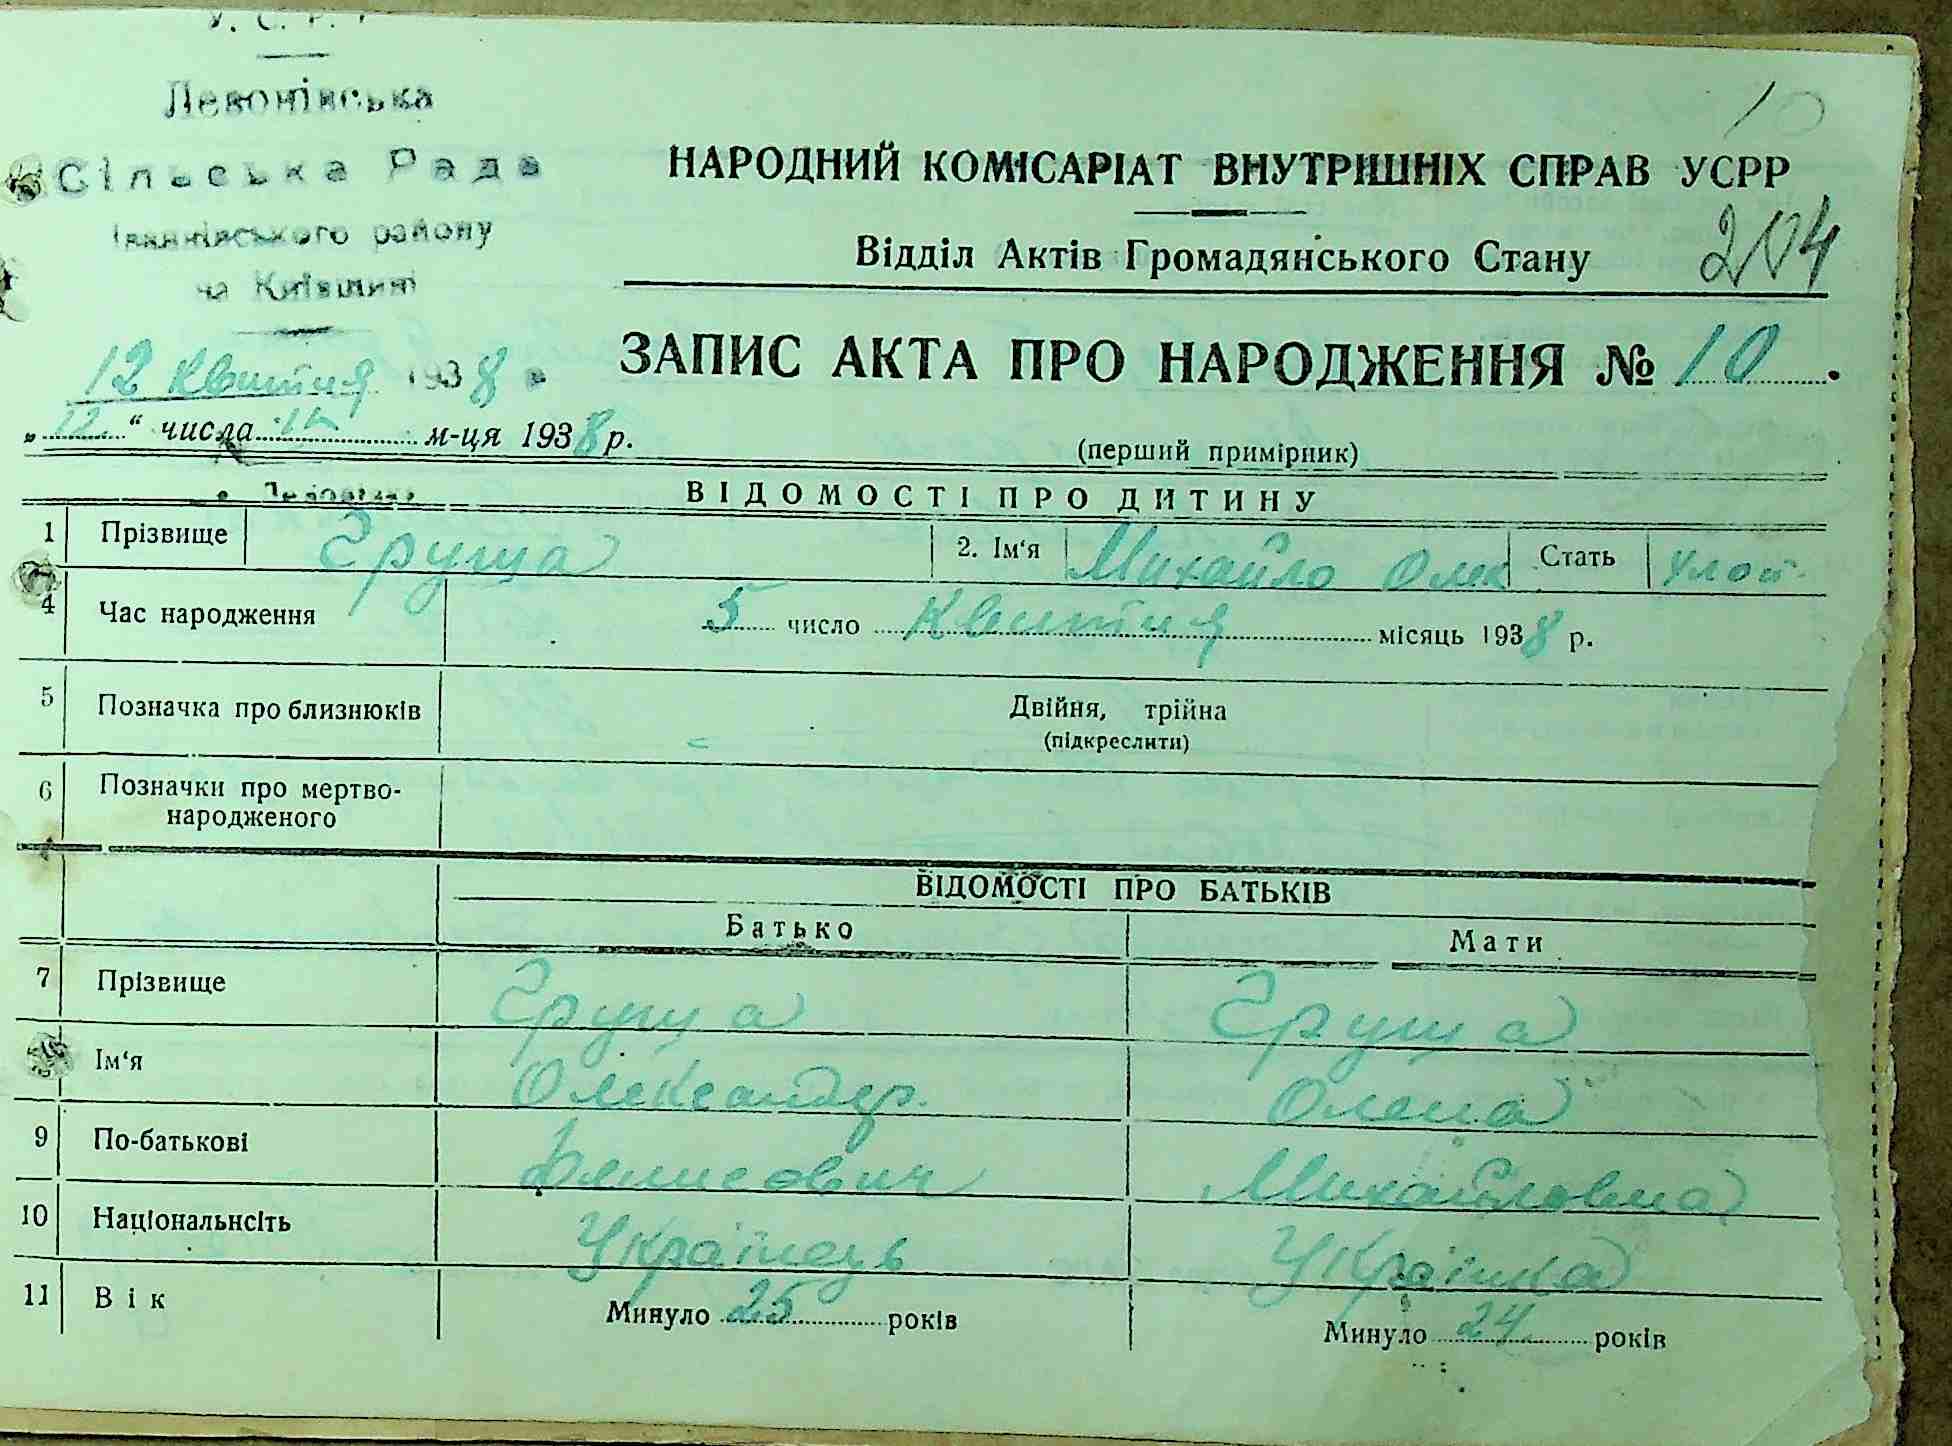 У. С. Р. Р
Левонівська
Сільська Рада
Іванківського району
на Київщині
12 Квітня 1938 р
10
НАРОДНИЙ КОМІСАРІАТ ВНУТРІШНІХ СПРАВ УСРР
Відділ Актів Громадянського Стану 204
ЗАПИС АКТА ПРО НАРОДЖЕННЯ № 10.
„12“ числа м-ця 1938 р.
(перший примірник)
ВІДОМОСТІ ПРО ДИТИНУ
1 Прізвище Груща 2. Ім‘я Михайло Олек Стать
4 Час народження 5 число Квитня місяць 1938 р.
5 Позначка про близнюків Двійня, трійна
(підкреслити)
6 Позначки про мертво-
народженого
ВІДОМОСТІ ПРО БАТЬКІВ
Батько Мати
7 Прізвище Груща Груща
Ім‘я Олександр Олена
9 По-батькові Михайловна
10 Національнсіть Українець Українка
11 Вік Минуло 25 років Минуло 24 років